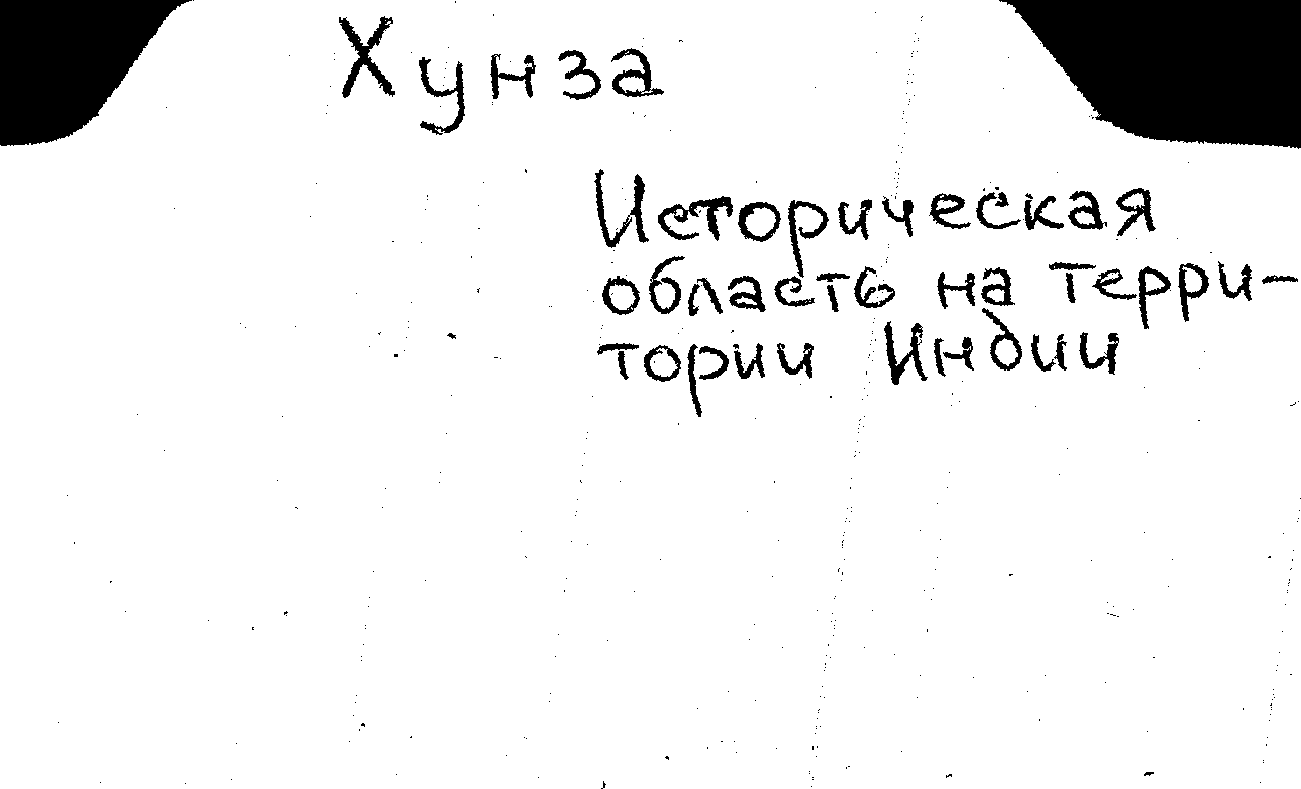 Хунза
Историческая
область на терри-
тории Индии